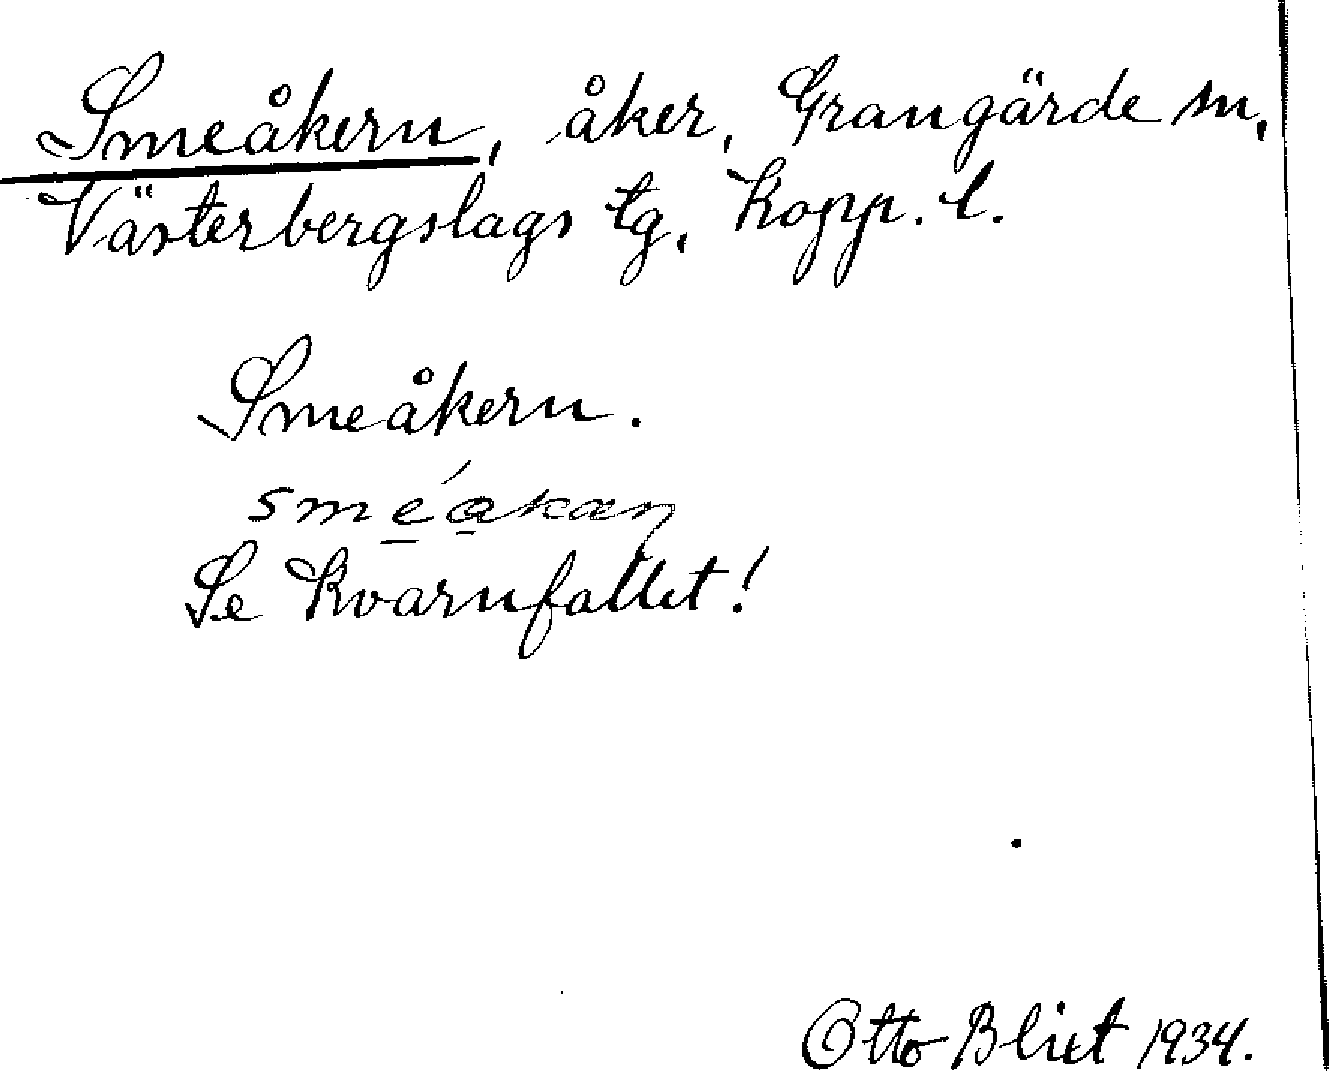 Smeåkern, åker, Grangärde sn,
Västerbergslags tg, Kopp. l.
Smeåkern.
Se Kvarnfallet!
Otto Blixt 1934.